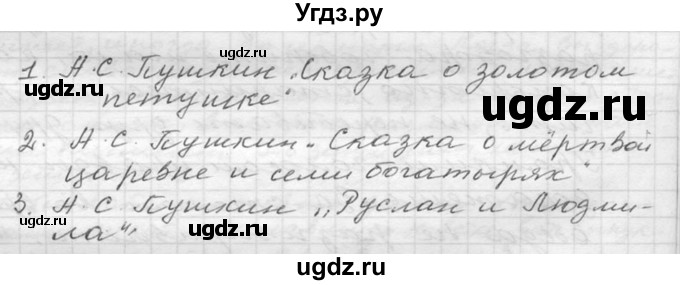 Угдз.ру
gdz.ru
1 А.С. Пушкин „Сказка о золотом
gdz.ru
петушке"
gdz.ru
2. А.С. Пушкин „Сказка о мёртвой
царевне и семи богатырях"
3. А.С. Пушкин ,,Руслан и Людми-
ugdz.ru
ugdz.ru
ла"
ugdz.ru
ugdz.ru